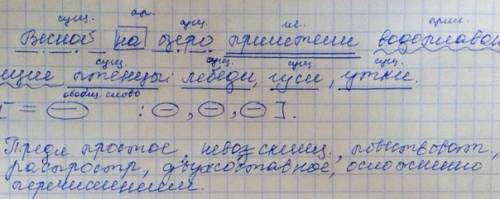 сущ. пр. сущ. гл. прил.
Весной на озеро прилетели водоплаваю
сущ. сущ. сущ. сущ.
щие птенцы: лебеди, гуси, утки.
обобщ. слово
[ = О : О, О, О ].
Предл простое, невосклиц., повествоват.,
распростр, двухсоставное, осложнено
перечислением.